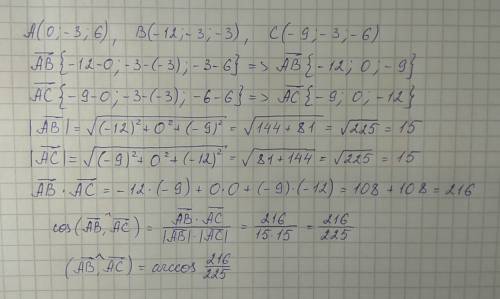 A(0; -3; 6), B(-12; -3; -3), C(-9; -3; -6)
AB{-12-0; -3-(-3); -3-6} => AB{-12; 0; -9}
AC{-9-0; -3-(-3); -6-6} => AC{-9; 0; -12}
|AB| = √((-12)²+0²+(-9)²) = √(144+81) = √225 = 15
|AC| = √((-9)²+0²+(-12)²) = √(81+144) = √225 = 15
AB · AC = -12·(-9) + 0·0 + (-9)·(-12) = 108 + 108 = 216
cos(AB^AC) = AB · AC / |AB|·|AC| = 216/15·15 = 216/225
(AB^AC) = arccos 216/225